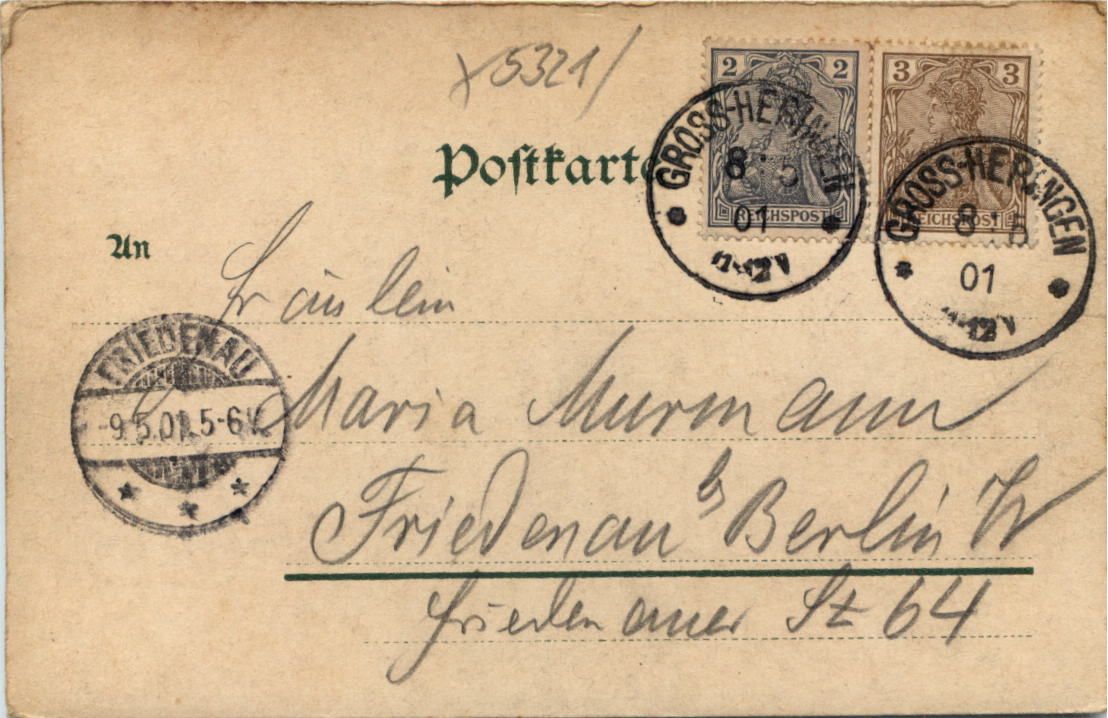 5321
2 2
REICHSPOST
3 3
REICHSPOST
GROSS-HERINGEN
8 5
01
11-12V
GROSS-HERINGEN
8 5
01
11-12V
Postkarte
An
Fräulein
Maria Murmann
Friedenau b Berlin W
Friedenauer St 64
FRIEDENAU
-9.5.01.5-6V.